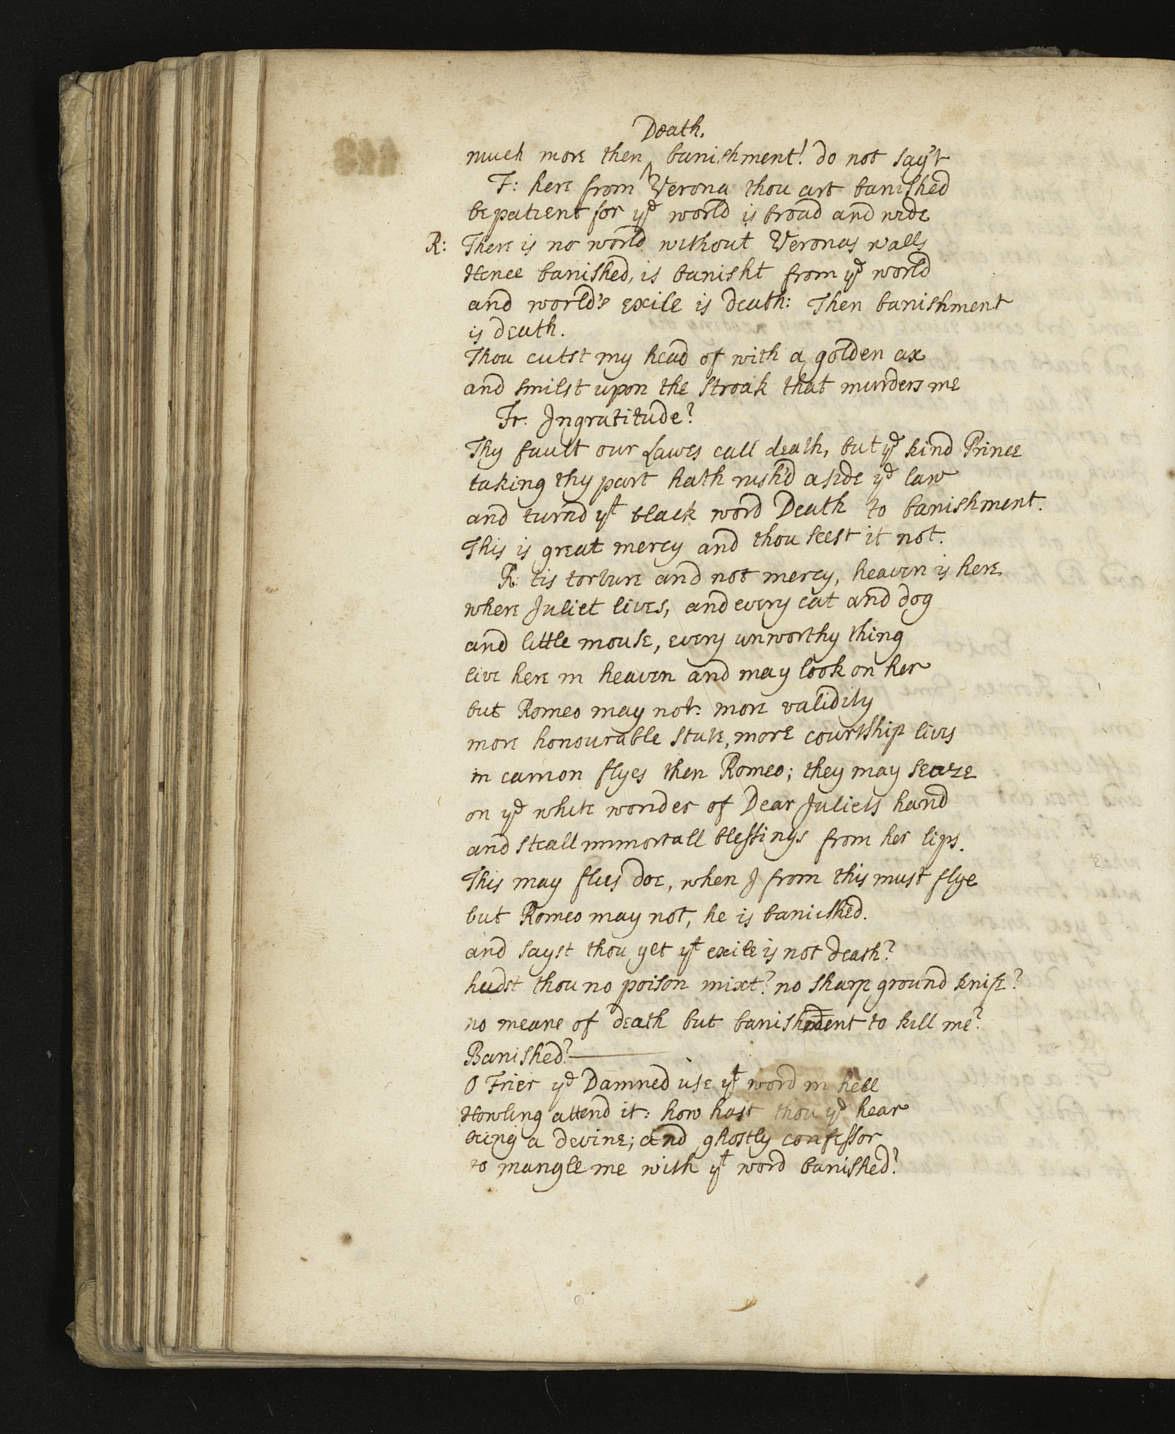 Death.
much more then ^ banishment! do not say't
F: here from Verona thou art banished
be patient for ye world is broad and wide
R: There is no world without Veronas walls
Hence banished, is banisht from ye world
and world's exile is death: Then banishment
is death.
Thou cutst my head of with a golden ax
and smilst upon the stroak that murders me
Fr: Ingratitude?
Thy fault our Lawes call death, but ye kind Prince
taking thy part hath rush'd aside ye law
and turnd yt black word Death to banishment.
This is great mercy and thou seest it not.
R: tis torture and not mercy, heaven is here
where Juliet lives, and every cat and dog
and little mouse, every unworthy thing
live here in heaven and may look on her
but Romeo may not: more validity
more honourable state, more courtship lives
in carrion flyes then Romeo; they may seaze
on ye white wonder of Dear Juliets hand
and steall immortall blessings from her lips.
This may flies doe, when I from this must flye
but Romeo may not, he is banished.
and sayst thou yet yt exile is not death?
hadst thou no poison mixt? no sharp ground knife?
no meane of death but banishment to kill me?
Banished?
O Frier ye Damned use yt word in hell
Howling attend it: how hast thou ye hear
being a devine; and ghostly confessor
to mangle me with yt word banished?